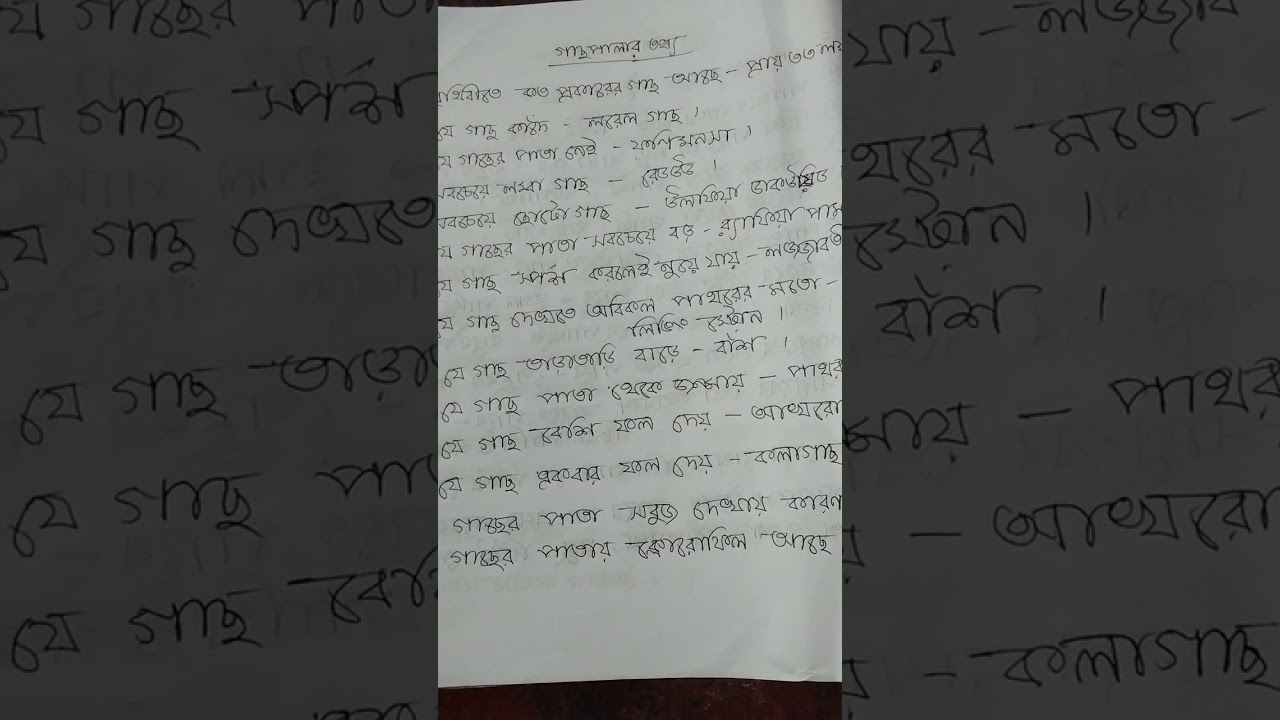 গাছপালার তথ্য
পৃথিবীতে কত প্রকারের গাছ আছে - প্রায় ৩৩ লক্ষ
যে গাছ কাঁদে - লরেল গাছ ।
যে গাছের পাতা নেই - ফনিমনসা ।
সবচেয়ে লম্বা গাছ - রেডউড ।
সবচেয়ে ছোটো গাছ - উলফিয়া
যে গাছের পাতা সবচেয়ে বড় - র‍্যাফিয়া পাম
যে গাছ স্পর্শ করলেই নুয়ে যায় - লজ্জাবতী
যে গাছ দেখতে অবিকল পাথরের মতো -
লিভিং স্টোন ।
যে গাছ তাড়াতাড়ি বাড়ে - বাঁশ ।
যে গাছ পাতা থেকে জন্মায় - পাথর
যে গাছ বেশি ফল দেয় - আখরো
যে গাছ একবার ফল দেয় - কলাগাছ
গাছের পাতা সবুজ দেখায় কারণ
গাছের পাতায় ক্লোরোফিল আছে